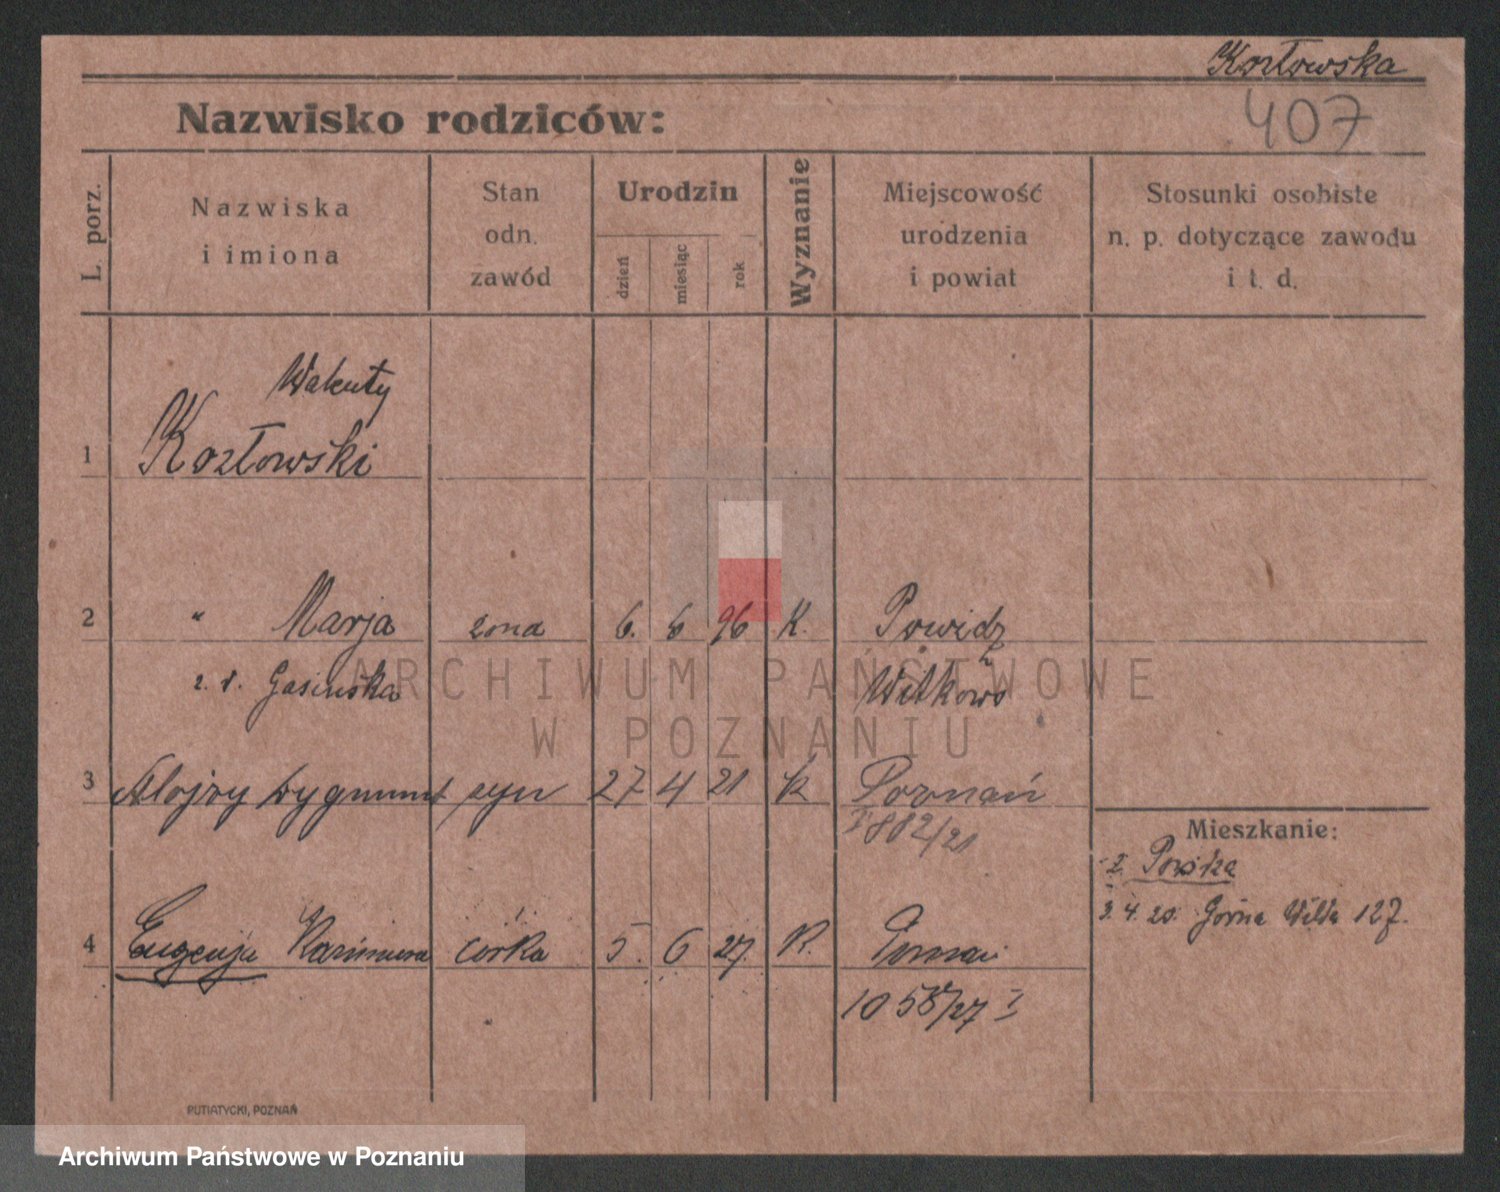 Kozłowska
407
Nazwisko rodziców:
L. porz.
Nazwiska
i imiona
Stan
odn.
zawód
Urodzin
dzień
miesiąc
rok
Wyznanie
Miejscowość
urodzenia
i powiat
Stosunki osobiste
n. p. dotyczące zawodu
i t. d.
1 Walenty
Kozłowski
2 " Marja żona 6. 6 96 K. Powidz
z. d. Gasińska Witkowo
ARCHIWUM PAŃSTWOWE
W POZNANIU
3 Alojzy Zygmunt syn 27 4 21 k Poznań
I 882/21
Mieszkanie:
3. 4. 20. Górna Wilda 127.
4 Eugenja Kazimiera córka 5. 6 27. K. Poznań
1058/27 I
PUTIATYCKI, POZNAŃ
Archiwum Państwowe w Poznaniu